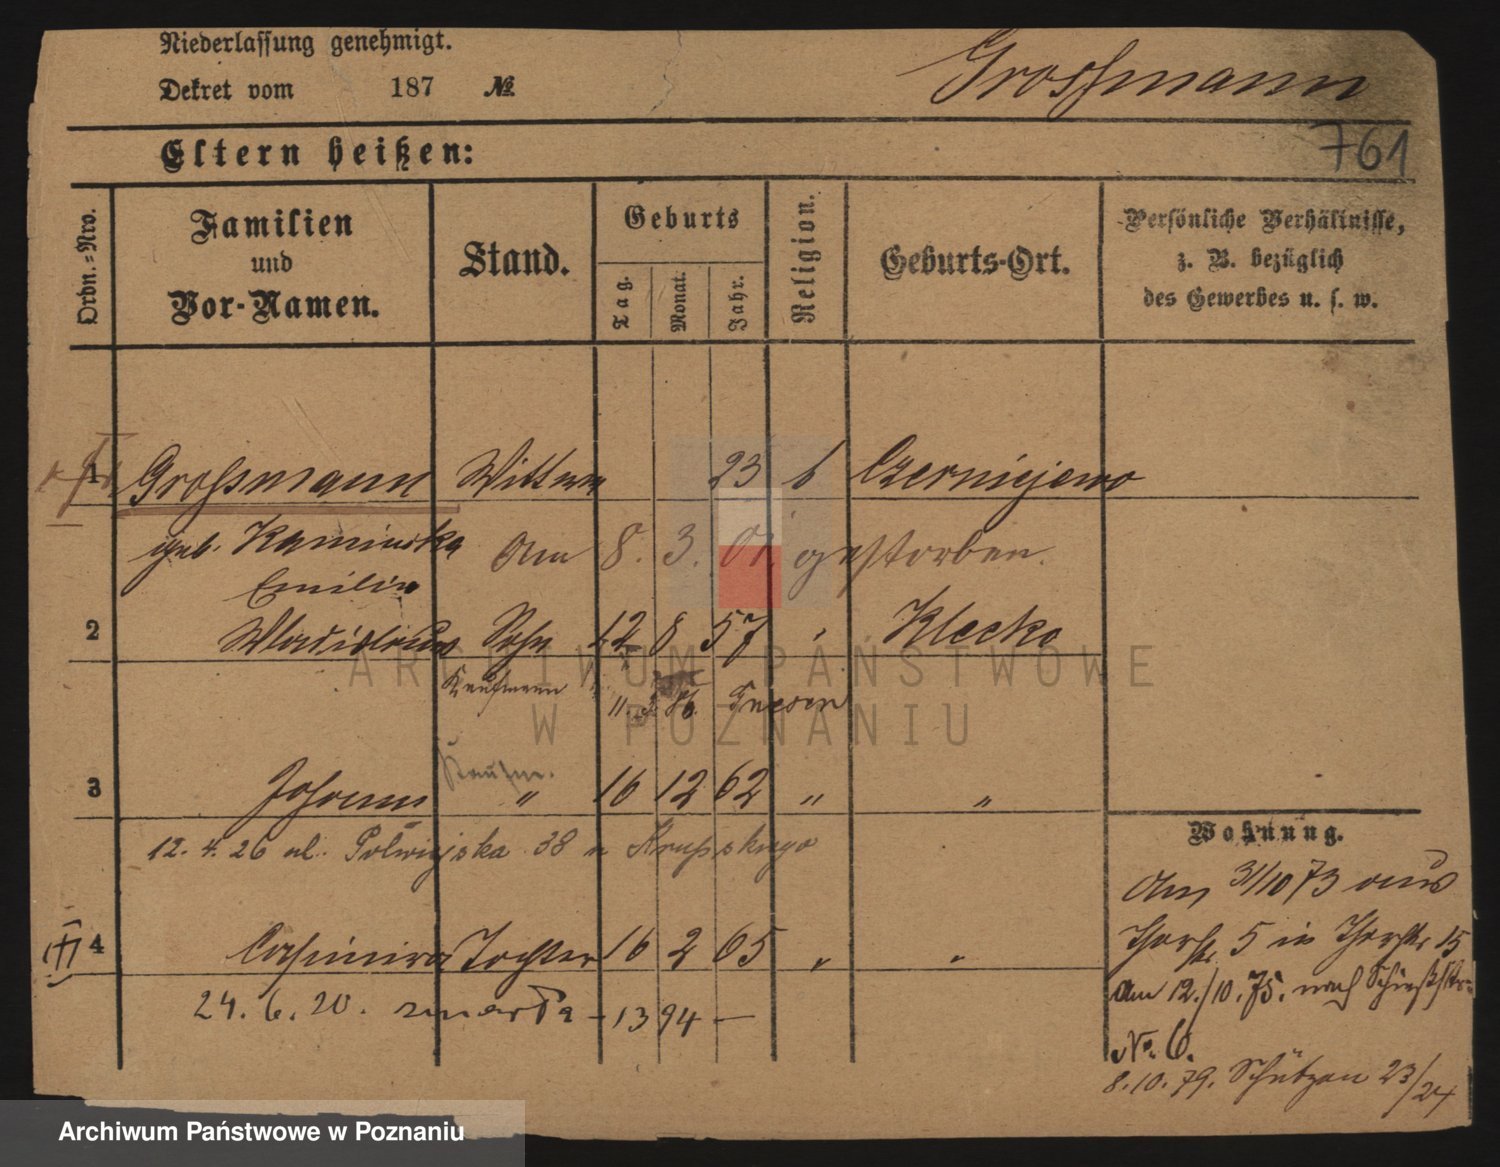 Niederlassung genehmigt.
Dekret vom 187 №
Grossmann
761
Eltern heißen:
Ordn.-Nro.
Familien
und
Vor-Namen.
Stand.
Geburts
Tag.
Monat.
Jahr.
Religion.
Geburts-Ort.
Persönliche Verhältnisse,
z. B. bezüglich
des Gewerbes u. s. w.
1 Grossmann Wittwe 23 k Czerniejewo
geb. Kaminska Am 8. 3. 01. gestorben.
Emilie
2 Wladislaus Sohn 12 8 57 " Klecko
Kaufmann 86. Gnesen
Kaufm.
3 Johann " 16 12 62 " "
12. 4. 26 ul. Półwiejska 38 u Krupskiego
4 Casimira Tochter 16 2 65 " "
24. 6. 20. zmarła - 1394 -
Wohnung.
Am 31/10 73 aus
Thorstr. 5 in Thorstr. 15
Am 12./10. 75. nach Schießstr.
No. 6.
8. 10. 79. Schützen 23/24
ARCHIWUM PAŃSTWOWE
W POZNANIU
Archiwum Państwowe w Poznaniu